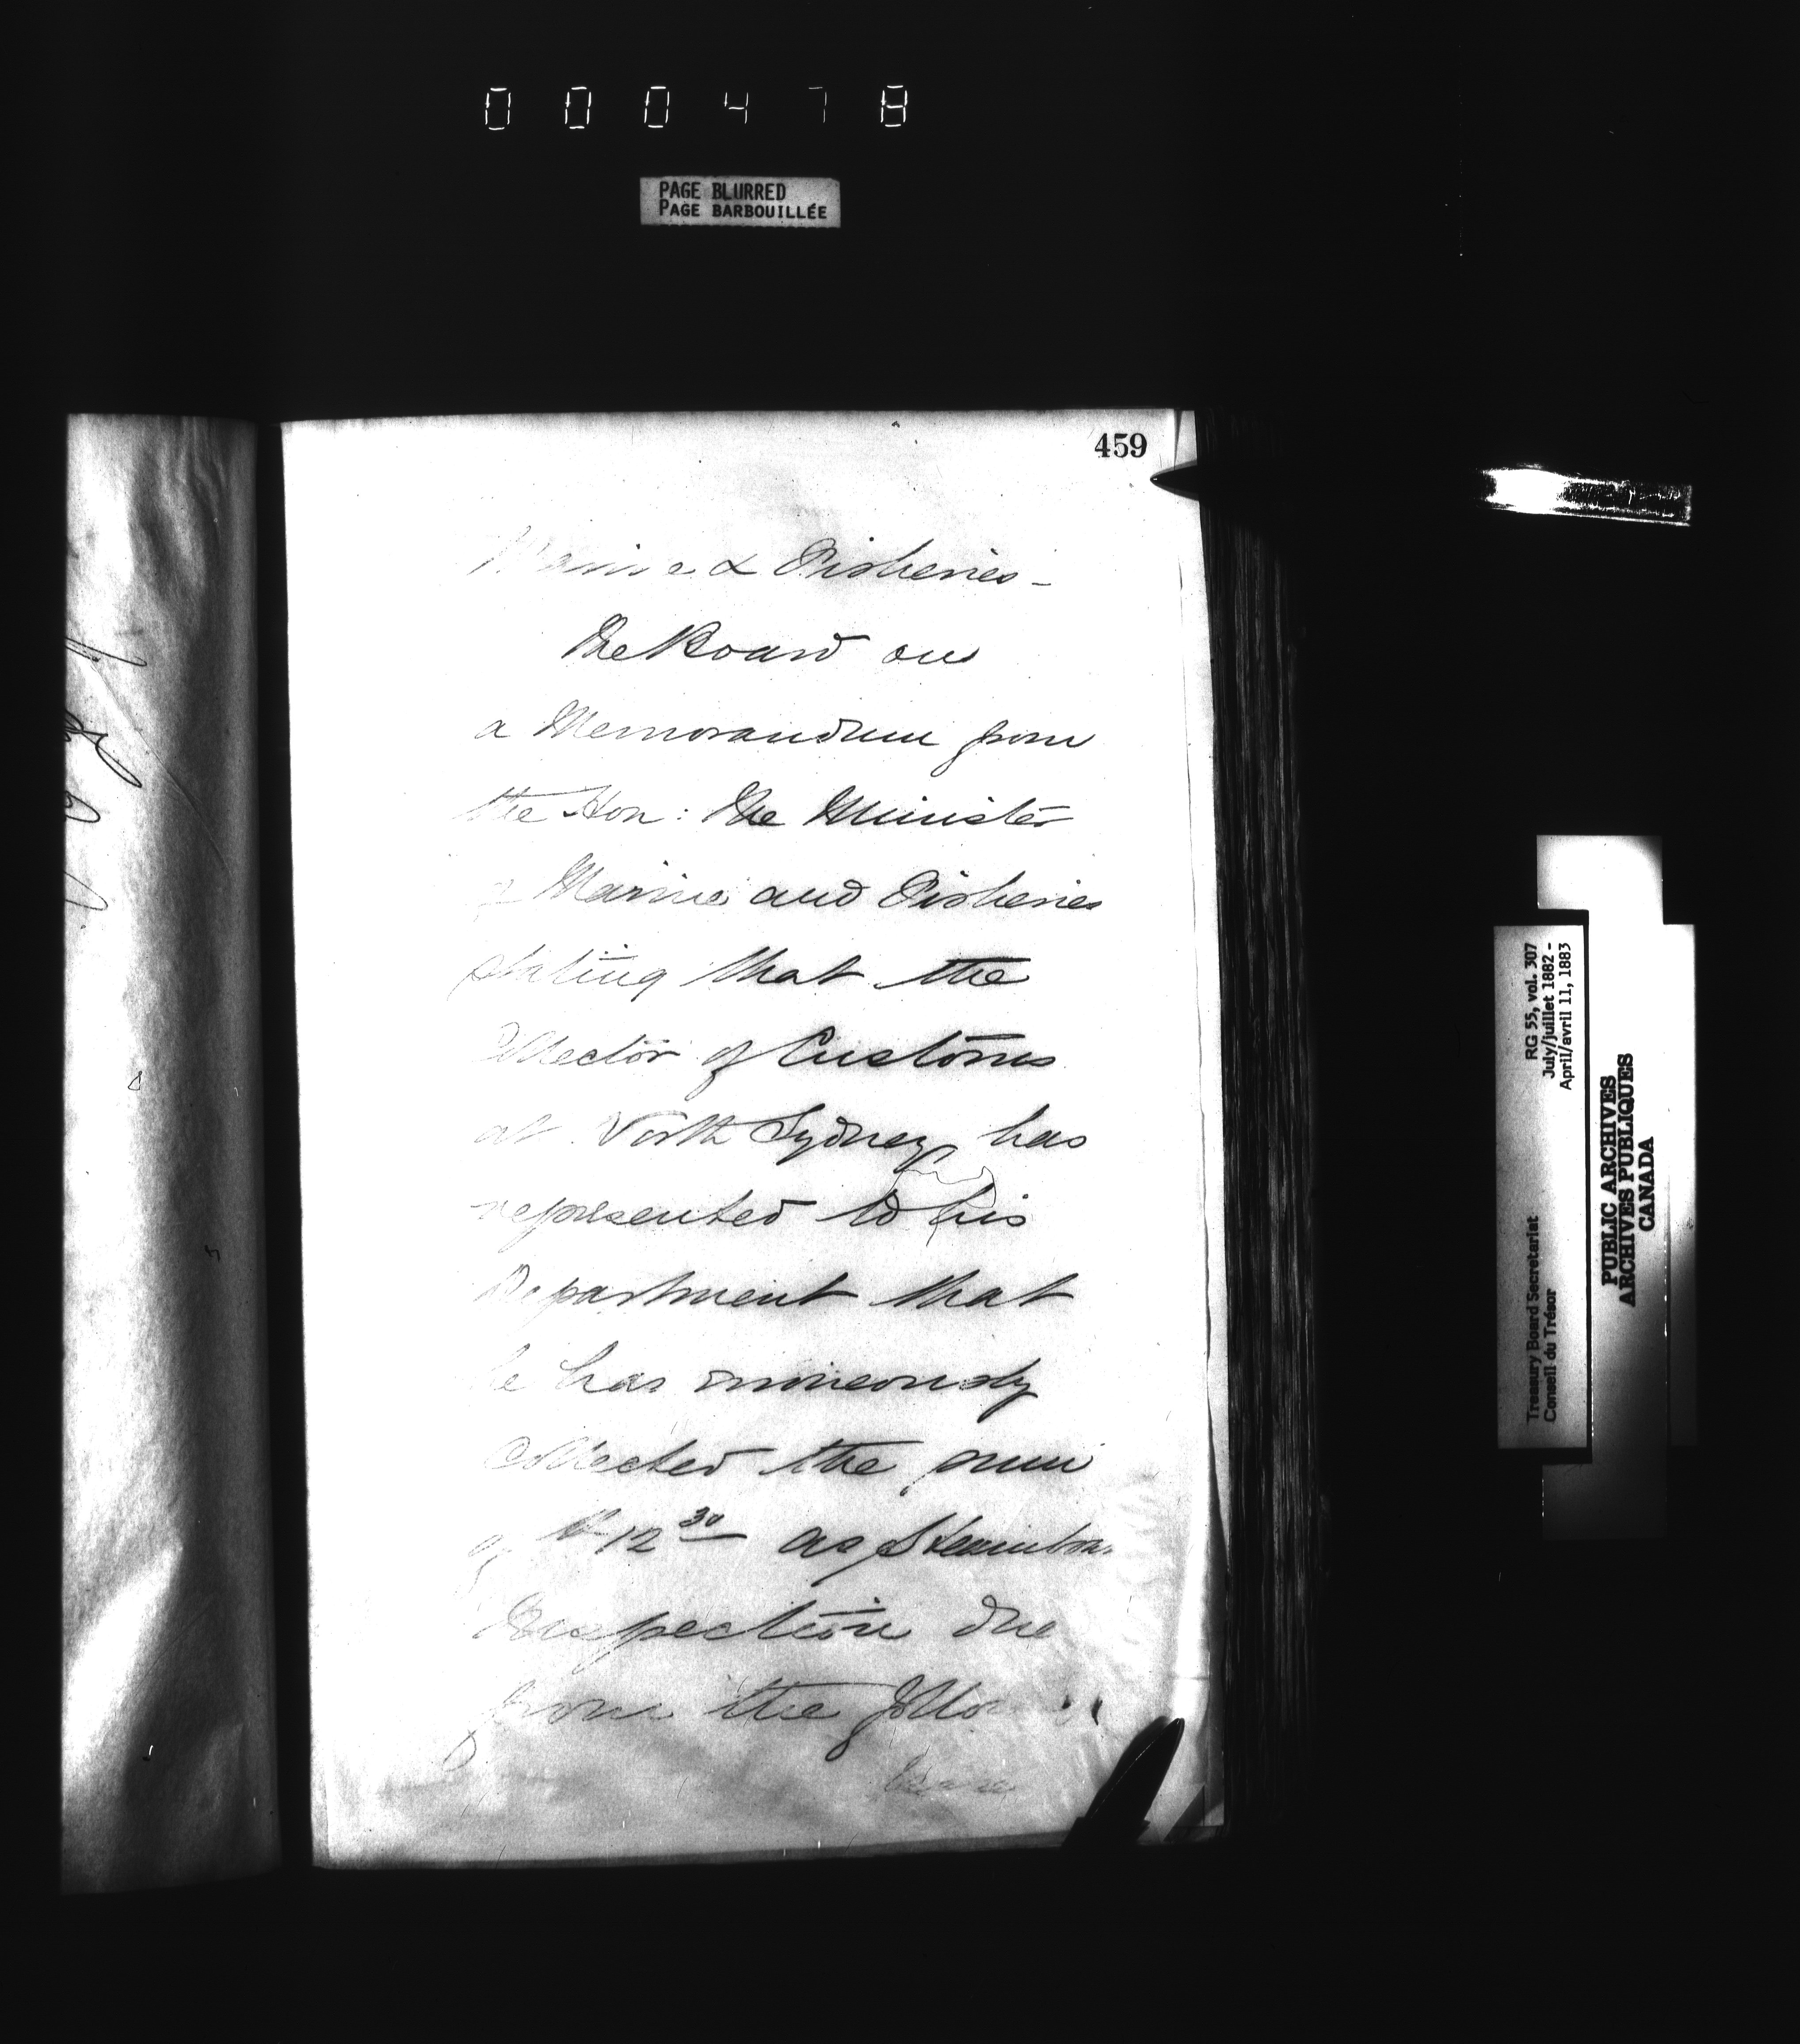 000478
PAGE BLURRED
PAGE BARBOUILLÉE
459
Marine & Fisheries -
The Board on
a Memorandum from
the Hon: The Minister
of Marine and Fisheries
stating that the
Collector of Customs
at North Sydney has
represented to his
Department that
he has erroneously
Collected the sum
of $12 30 as Steamboat
Inspection due
from the
RG 55, vol. 307
July/juillet 1882 -
April/avril 11, 1883
Treasury Board Secretariat
Conseil du Trésor
PUBLIC ARCHIVES
ARCHIVES PUBLIQUES
CANADA